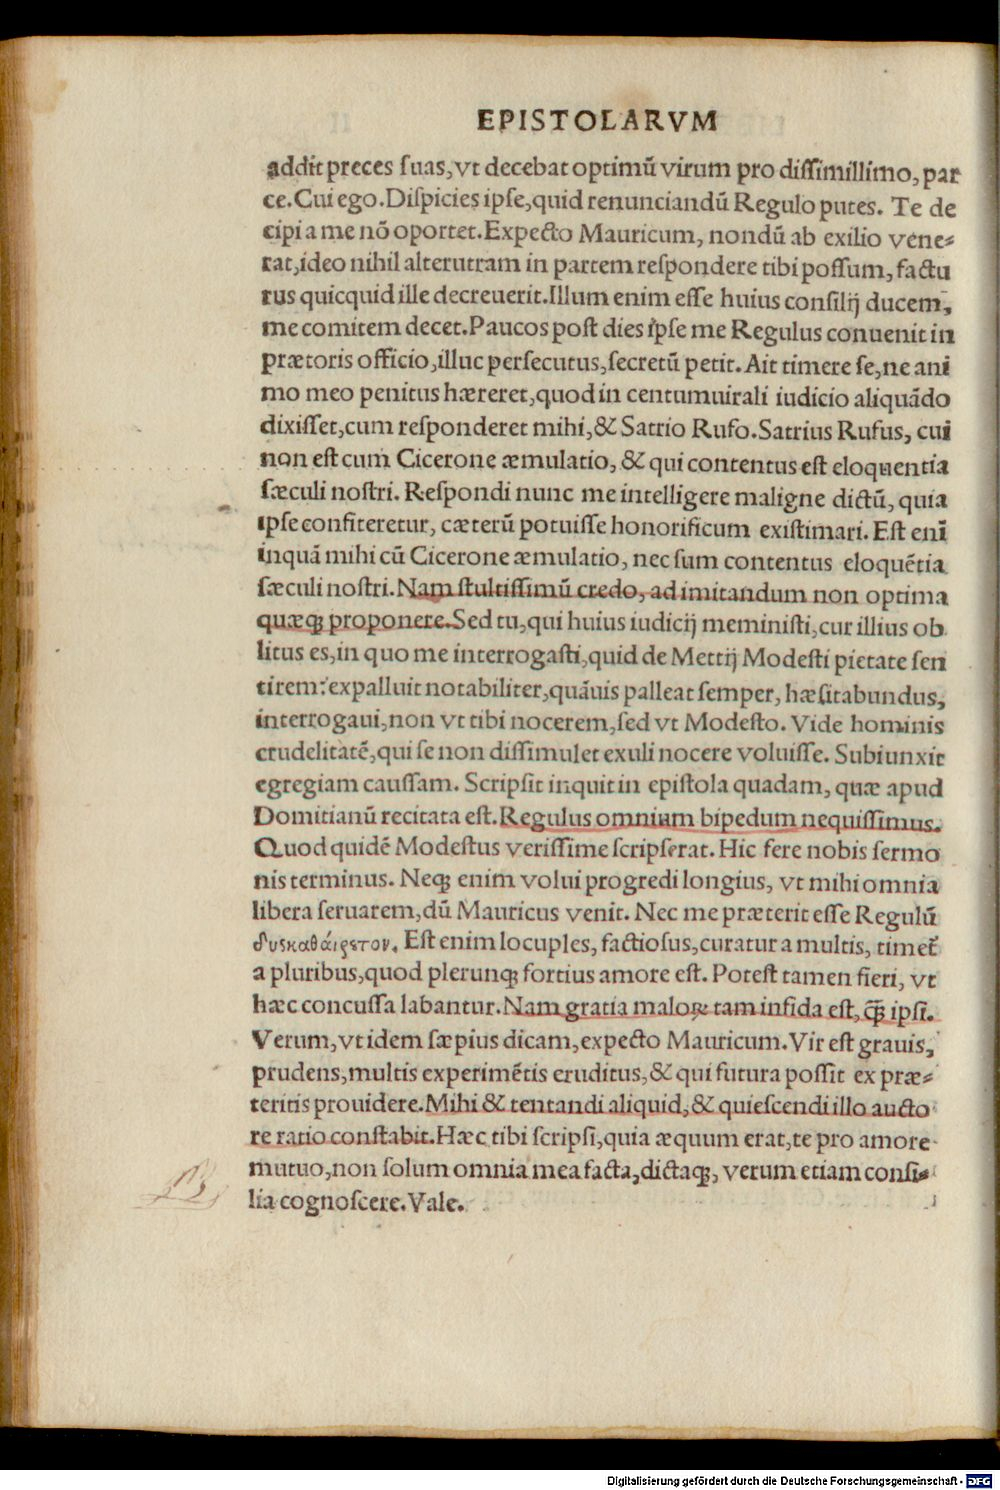 EPISTOLARVM
addit preces suas,vt decebat optimū virum pro dissimillimo, par
ce.Cui ego.Dispicies ipse,quid renunciandū Regulo putes. Te de
cipi a me nō oportet.Expecto Mauricum, nondū ab exilio vene-
rat,ideo nihil alterutram in partem respondere tibi possum, factu
rus quicquid ille decreuerit.Illum enim esse huius consilij ducem,
me comitem decet.Paucos post dies ipse me Regulus conuenit in
prætoris officio,illuc persecutus,secretū petit. Ait timere se,ne ani
mo meo penitus hæreret,quod in centumuirali iudicio aliquādo
dixisset,cum responderet mihi,& Satrio Rufo.Satrius Rufus, cui
non est cum Cicerone æmulatio, & qui contentus est eloquentia
sæculi nostri. Respondi nunc me intelligere maligne dictū, quia
ipse confiteretur, cæterū potuisse honorificum existimari. Est enī
inquā mihi cū Cicerone æmulatio, nec sum contentus eloquētia
sæculi nostri. Nam stultissimū credo, ad imitandum non optima
quæq; proponere.Sed tu, qui huius iudicij meministi,cur illius ob
litus es,in quo me interrogasti,quid de Mettij Modesti pietate sen
tirem: expalluit notabiliter,quāuis palleat semper, hæsitabundus,
interrogaui,non vt tibi nocerem,sed vt Modesto. Vide hominis
crudelitatē,qui se non dissimulet exuli nocere voluisse. Subiunxit
egregiam caussam. Scripsit inquit in epistola quadam, quæ apud
Domitianū recitata est. Regulus omnium bipedum nequissimus.
Quod quidē Modestus verissime scripserat. Hic fere nobis sermo
nis terminus. Neq; enim volui progredi longius, vt mihi omnia
libera seruarem,dū Mauricus venit. Nec me præterit esse Regulū
δυσκαθάιρετον. Est enim locuples, factiosus,curatur a multis, timet̄
a pluribus,quod plerunq; fortius amore est. Potest tamen fieri, vt
hæc concussa labantur. Nam gratia maloꝝ tam infida est, q̄ꝫ ipsi.
Verum,vt idem sæpius dicam,expecto Mauricum. Vir est grauis,
prudens,multis experimētis eruditus,& qui futura possit ex præ-
teritis prouidere. Mihi & tentandi aliquid,& quiescendi illo aucto
re ratio constabit. Hæc tibi scripsi,quia æquum erat,te pro amore
mutuo,non solum omnia mea facta,dictaq;, verum etiam consi-
lia cognoscere. Vale.
Digitalisierung gefördert durch die Deutsche Forschungsgemeinschaft - DFG